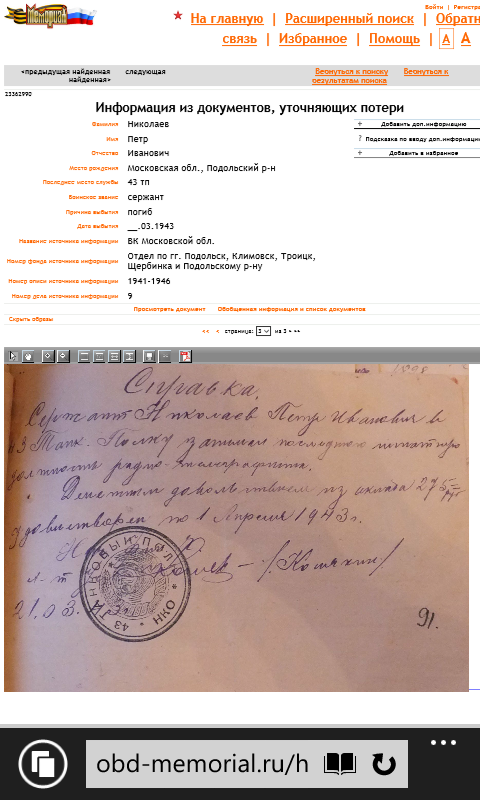 Мемориал
Войти | Регистра
На главную | Расширенный поиск | Обратн
связь | Избранное | Помощь | А А
<предыдущая найденная следующая
найденная>
Вернуться к поиску Вернуться к
результатам поиска
23362990
Информация из документов, уточняющих потери
Фамилия Николаев
Имя Петр
Отчество Иванович
Место рождения Московская обл., Подольский р-н
Последнее место службы 43 тп
Воинское звание сержант
Причина выбытия погиб
Дата выбытия __.03.1943
Название источника информации ВК Московской обл.
Номер фонда источника информации Отдел по гг. Подольск, Климовск, Троицк,
Щербинка и Подольскому р-ну
Номер описи источника информации 1941-1946
Номер дела источника информации 9
+ Добавить доп.информацию
? Подсказка по вводу доп.информации
+ Добавить в избранное
Просмотреть документ Обобщенная информация и список документов
Скрыть образы
<< < страница: 3 из 3 > >>
Справка.
Сержант Николаев Петр Иванович в
43 Танк. Полку занимал последнюю штатную
должность радио-телеграфиста.
Денежным довольствием из оклада 275
Удовлетворен по 1 Апреля 1943 г.
/Кошкин/
21.03.43
43 ТАНКОВЫЙ ПОЛК * НКО
91.
obd-memorial.ru/h